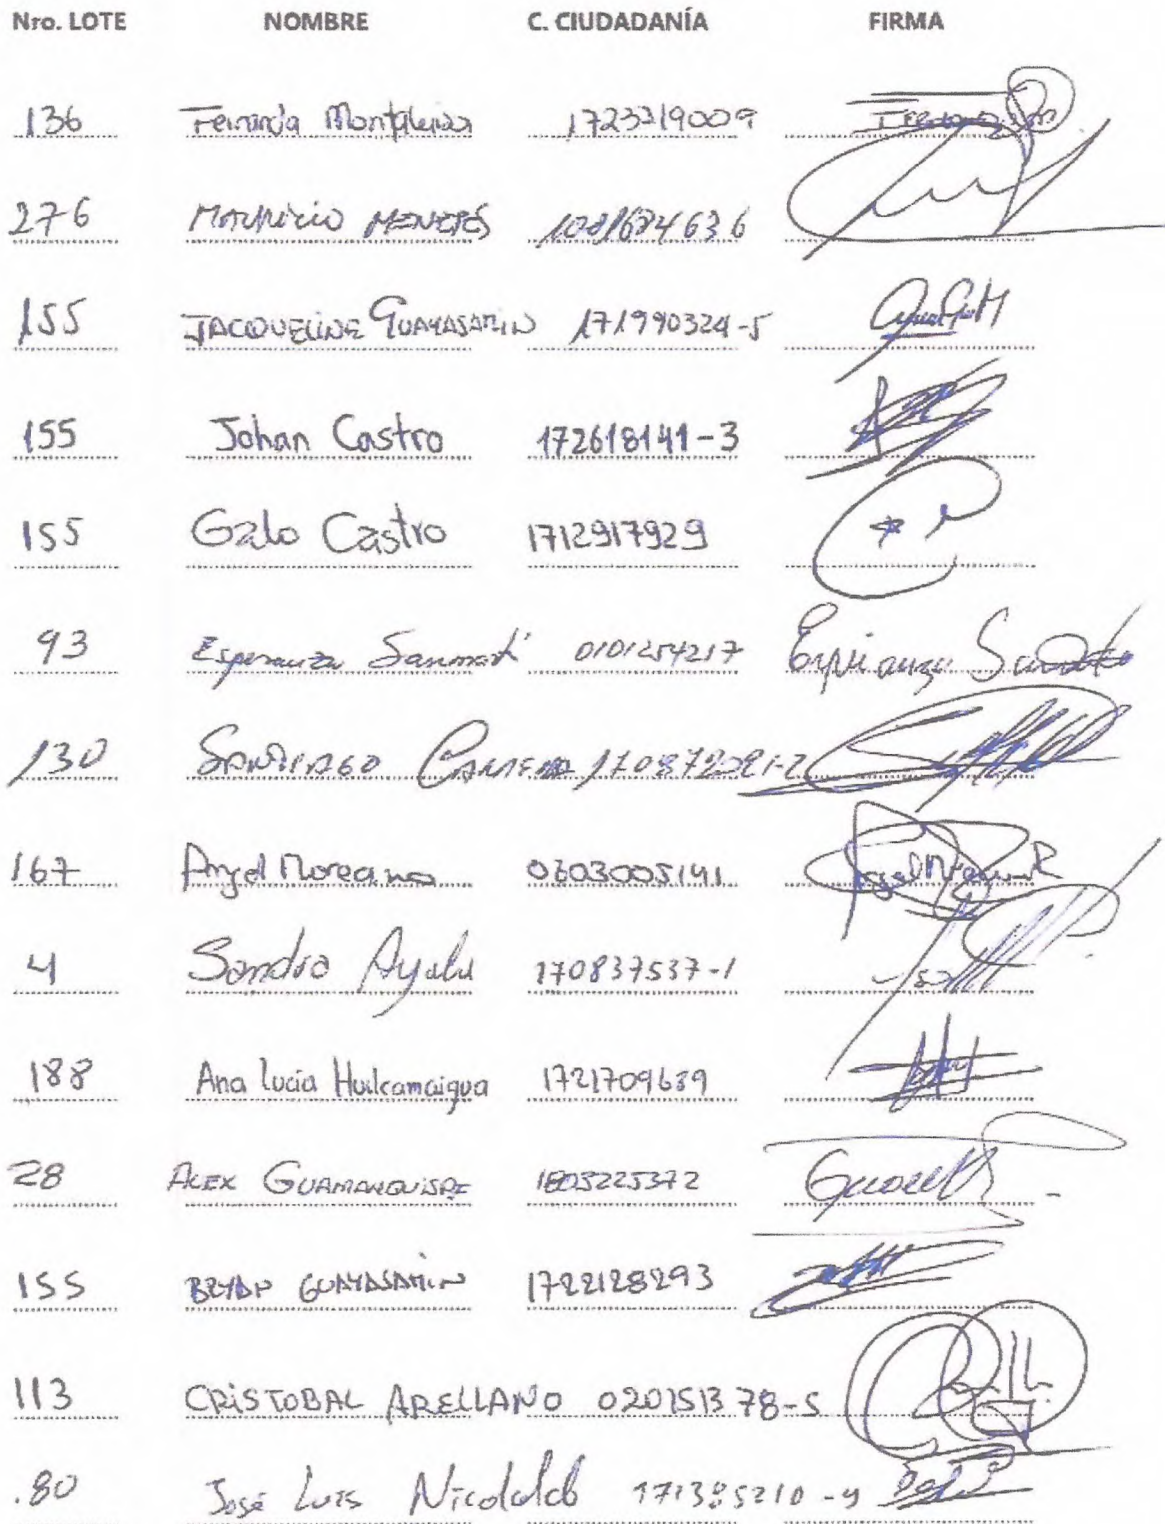 Nro. LOTE NOMBRE C. CIUDADANÍA FIRMA
136 Fernanda 1723319009
276 Mauricio
155 JACQUELINE GUAYASAMIN 171990324-5
155 Johan Castro 172618141-3
155 Galo Castro 1712917929
93 Esperanza 0101254217 Esperanza
130 SANTIAGO
167 Angel Moreano 0603005141
4 Sandra Ayala 170837537-1
188 Ana Lucía Huilcamaigua 1721709689
28 ALEX GUAMANQUISPE 1803225372
155 BRYAN GUAYASAMIN 1722128293
113 CRISTOBAL ARELLANO 020151378-5
80 José Luis 171385210-4